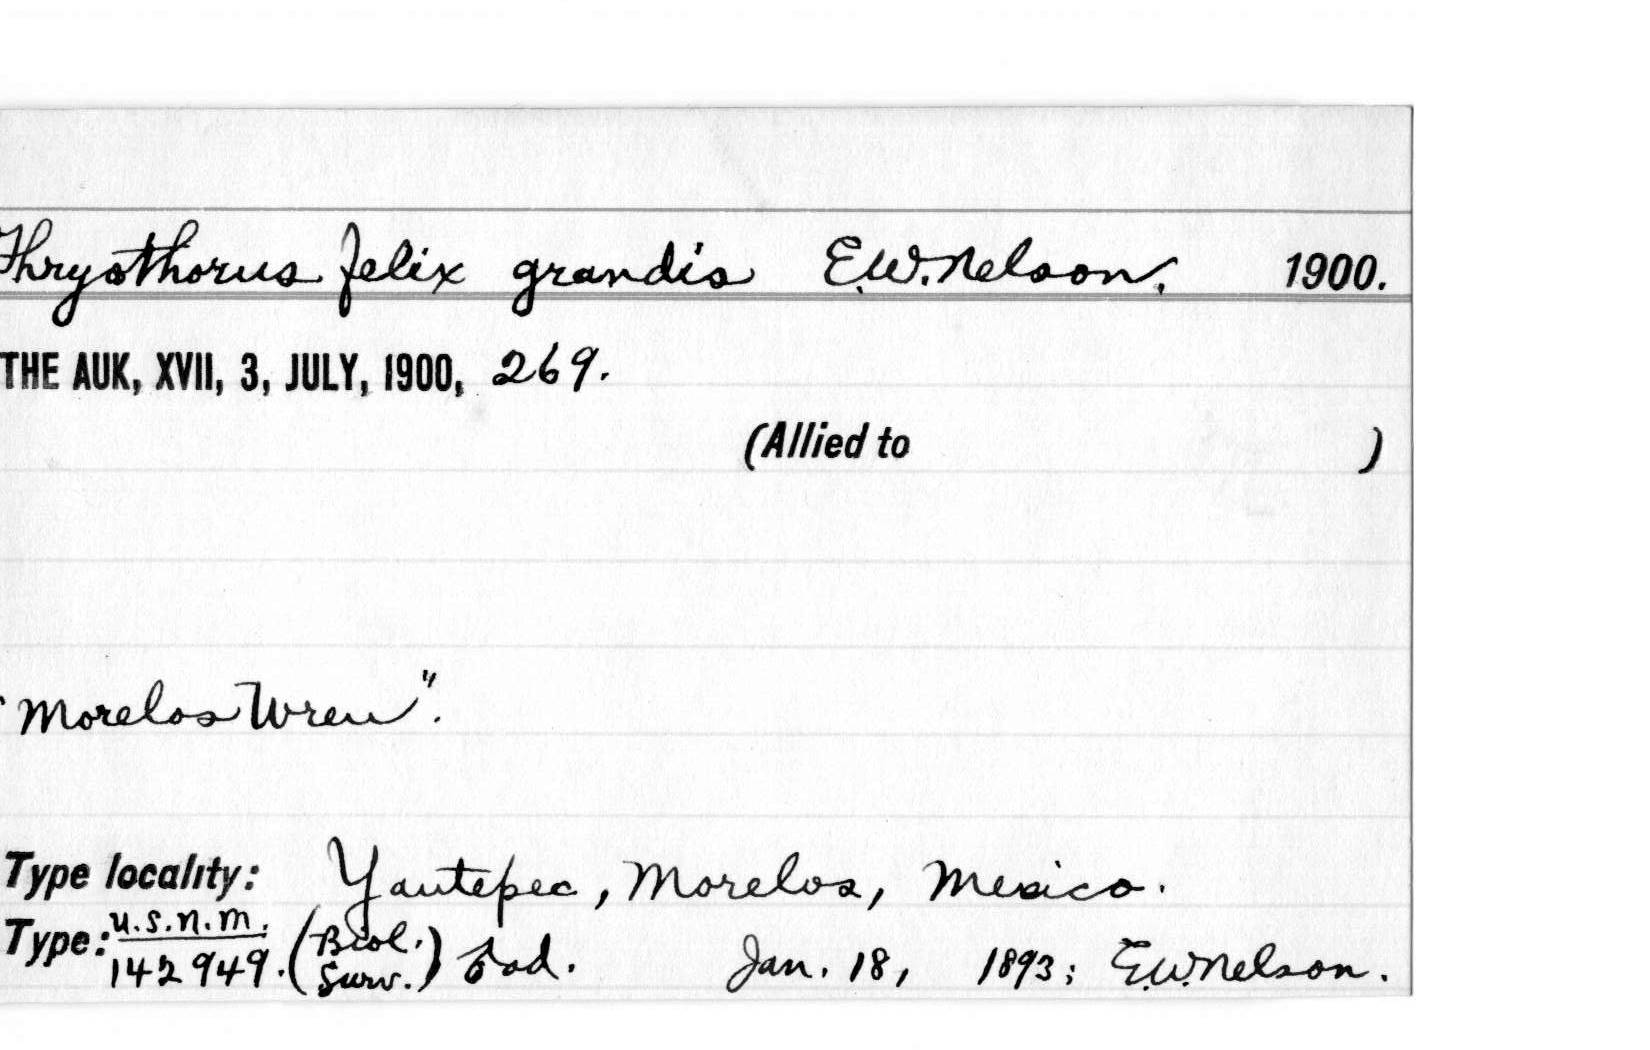 Thryothorus felix grandis E.W. Nelson, 1900.
THE AUK, XVII, 3, JULY, 1900, 269.
(Allied to )
"Morelos Wren".
Type locality: Yautepec, Morelos, Mexico.
Type: U.S.N.M. 142949. (Biol. Surv.) ♂ad. Jan. 18, 1893; E.W. Nelson.